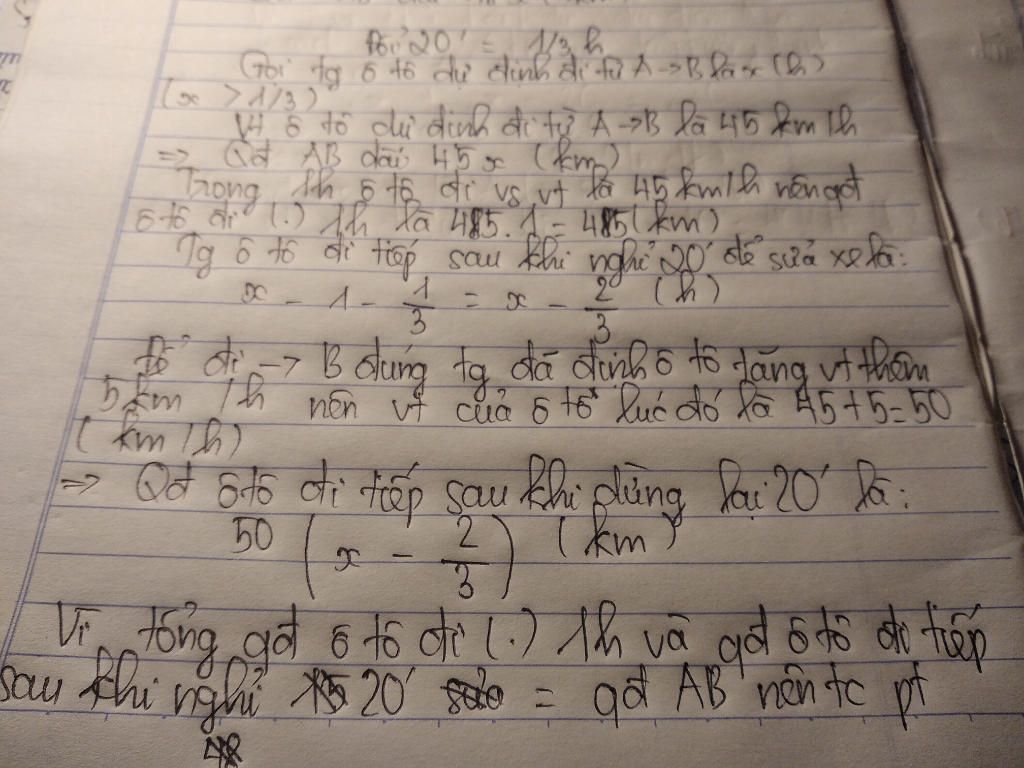 Đổi 20' = 1/3 h
Gọi tg ô tô dự định đi từ A → B là x (h)
(x > 1/3)
Vt ô tô dự định đi từ A → B là 45 km/h
=> Qđ AB dài 45 x (km)
Trong 1h ô tô đi vs vt là 45 km/h nên qđ
ô tô đi (.) 1h là 45.1 = 45 (km)
Tg ô tô đi tiếp sau khi nghỉ 20' để sửa xe là:
x - 1 - 1/3 = x - 2/3 (h)
Để đi → B đúng tg đã định ô tô tăng vt thêm
5 km /h nên vt của ô tô lúc đó là 45+5=50
(km/h)
=> Qđ ô tô đi tiếp sau khi dừng lại 20' là:
50 (x - 2/3) (km)
Vì tổng qđ ô tô đi (.) 1h và qđ ô tô đi tiếp
sau khi nghỉ 20' = qđ AB nên tc pt